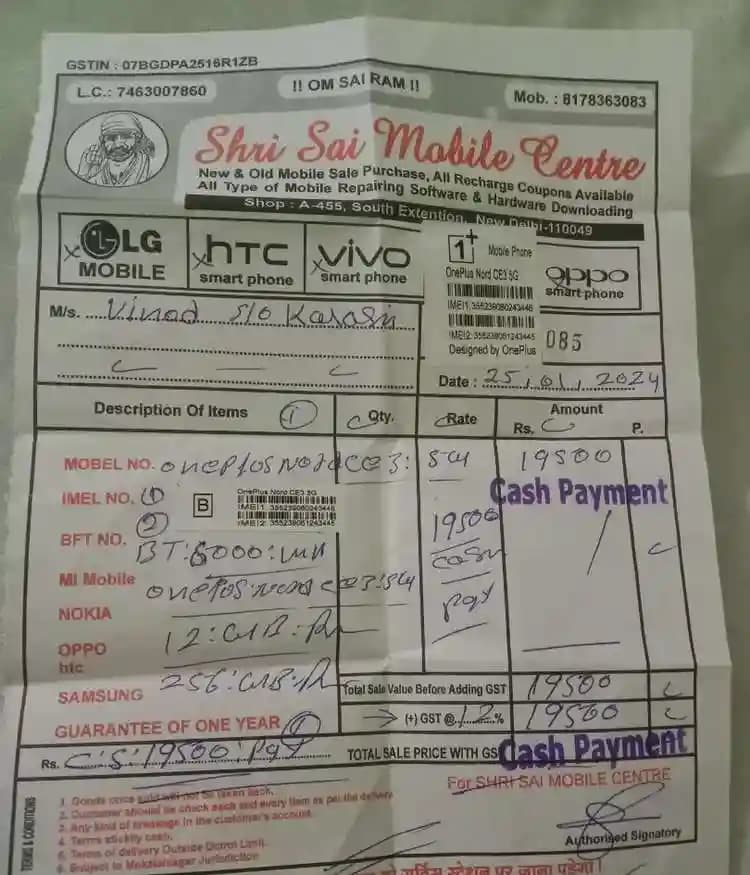 GSTIN : 07BGDPA2516R1ZB
L.C.: 7463007860
!! OM SAI RAM !!
Mob. : 8178363083
Shri Sai Mobile Centre
New & Old Mobile Sale Purchase, All Recharge Coupons Available
All Type of Mobile Repairing Software & Hardware Downloading
Shop : A-455, South Extention, New Delhi-110049
LG MOBILE
hTC smart phone
vivo smart phone
1+ Mobile Phone
OnePlus Nord CE3 5G
IMEI1: 355239060243446
IMEI2: 355239061243445
Designed by OnePlus
oppo smart phone
M/s. Vinod S/o
085
Date : 25,01,2024
Description Of Items 1 Qty. Rate Amount
Rs. P.
MOBEL NO. 19500
Cash Payment
IMEL NO. 1
2
B
OnePlus Nord CE3 5G
IMEI1: 355239060243446
IMEI2: 355239061243445
19500
BFT NO.
MI Mobile
NOKIA
OPPO 12:
htc
SAMSUNG 256:
Total Sale Value Before Adding GST 19500
GUARANTEE OF ONE YEAR 1
(+) GST @ 12 % 19500
Rs. 19500
TOTAL SALE PRICE WITH GS
Cash Payment
For SHRI SAI MOBILE CENTRE
TERMS & CONDITIONS
1. Goods once sold will not be taken back.
2. Customer should be check each and every item as per the delivery
3. Any kind of breakage in the customer's account.
4. Terms stickly cash.
5. Terms of delivery Outside Octroi Limit.
6. Subject to Jurisdiction
Authorised Signatory
पर जाना पड़ेगा।